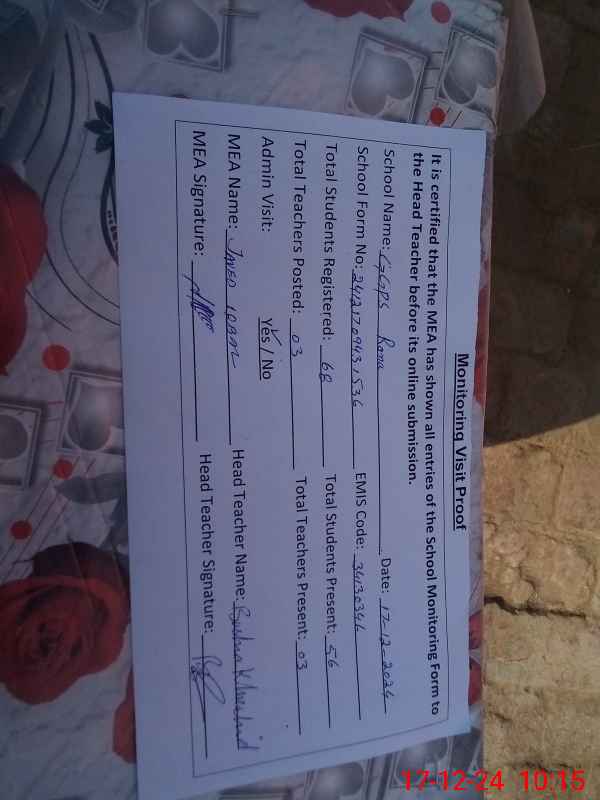 Monitoring Visit Proof
It is certified that the MEA has shown all entries of the School Monitoring Form to
the Head Teacher before its online submission.
School Name: GGPS Rana Date: 17-12-2024
School Form No: 24121709431536 EMIS Code: 34130346
Total Students Registered: 68 Total Students Present: 56
Total Teachers Posted: 03 Total Teachers Present: 03
Admin Visit: Yes / No
MEA Name: JAVED IQBAL Head Teacher Name: Bushra Khurshid
MEA Signature: Head Teacher Signature:
17-12-24 10:15